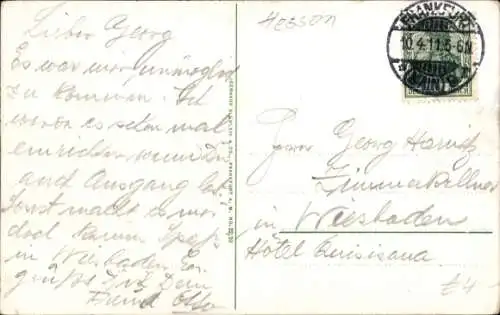 Lieber Georg
Es war mir unmöglich
zu kommen. Ich
es schon mal
einrichten wenn Du
auch Ausgang hast
Sonst macht es mir
doch kaum Spaß
in Wiesbaden. Es
grüßt Dich Dein
Freund Otto
HESSEN
FRANKFURT
10.4.11.5-6N
(MAIN)
Herrn Georg
Zimmerkellner
in Wiesbaden
Hôtel Quisisana
£4-